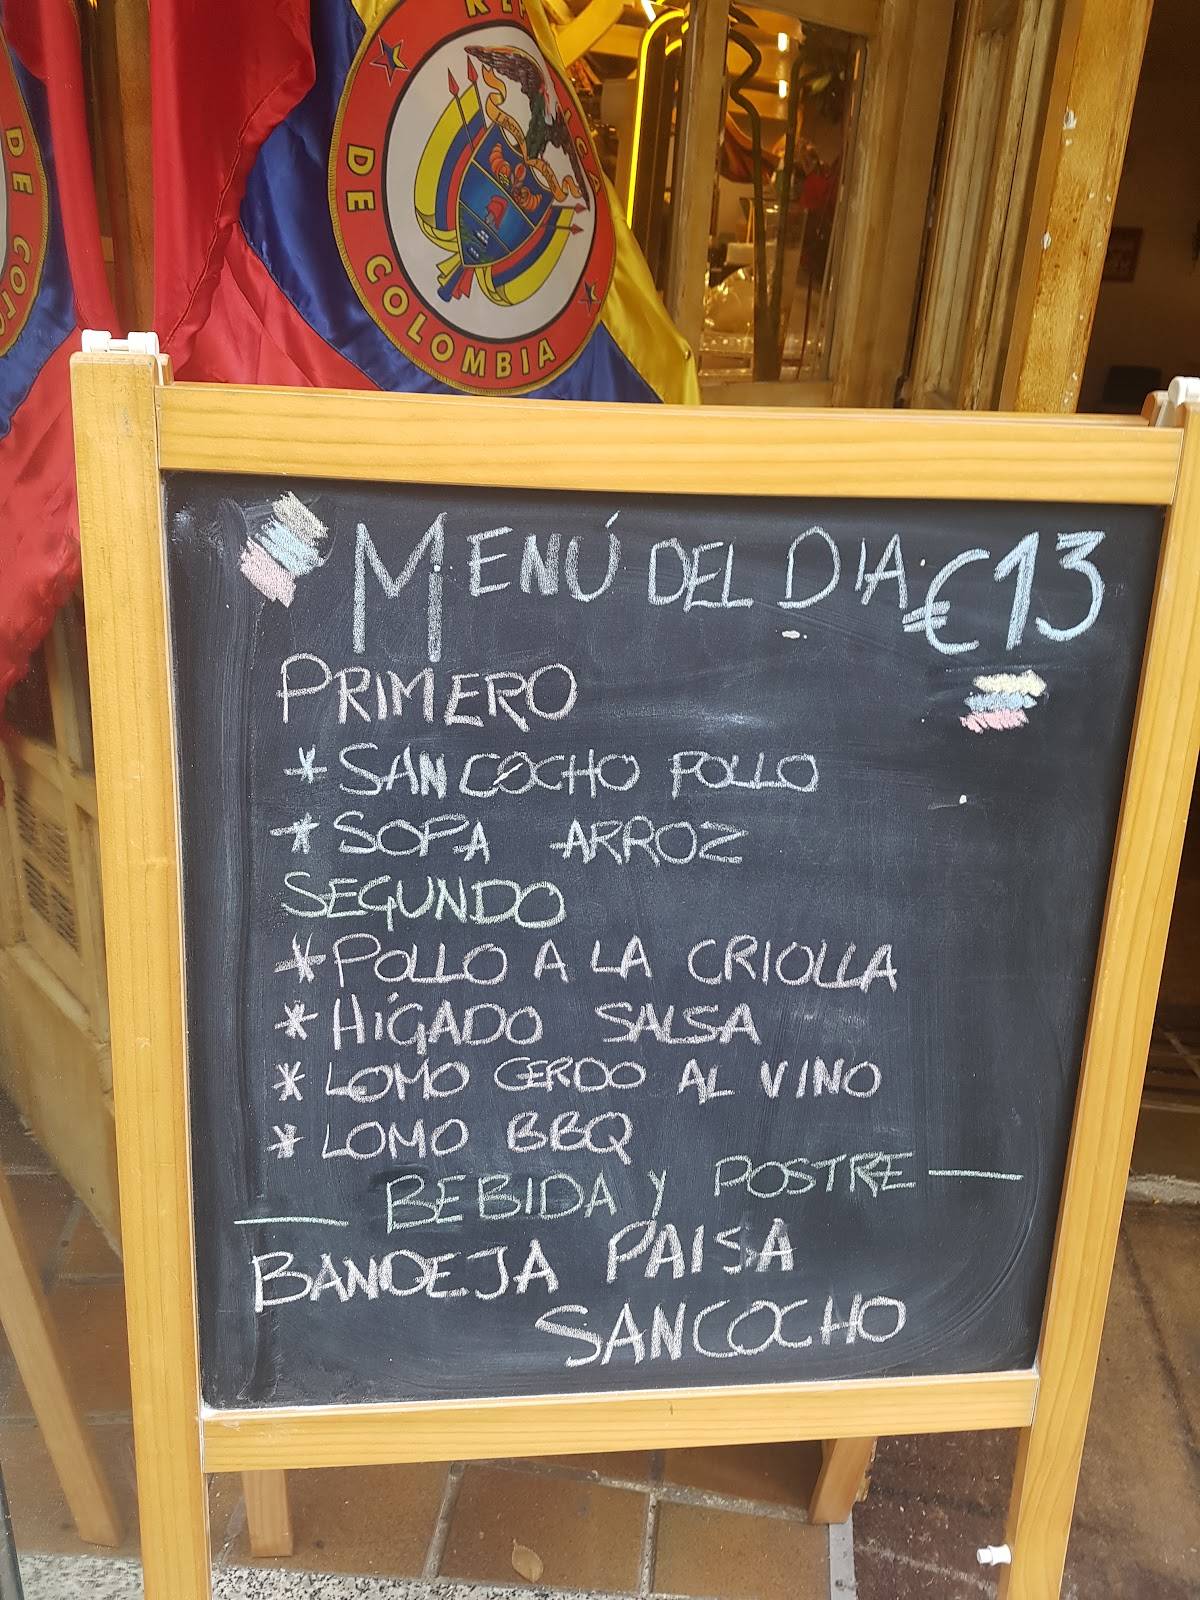 DE COLOMBIA
DE COLO
MENÚ DEL DIA €13
PRIMERO
* SANCOCHO POLLO
* SOPA ARROZ
SEGUNDO
* POLLO A LA CRIOLLA
* HÍGADO SALSA
* LOMO CERDO AL VINO
* LOMO BBQ
BEBIDA Y POSTRE
BANDEJA PAISA
SANCOCHO